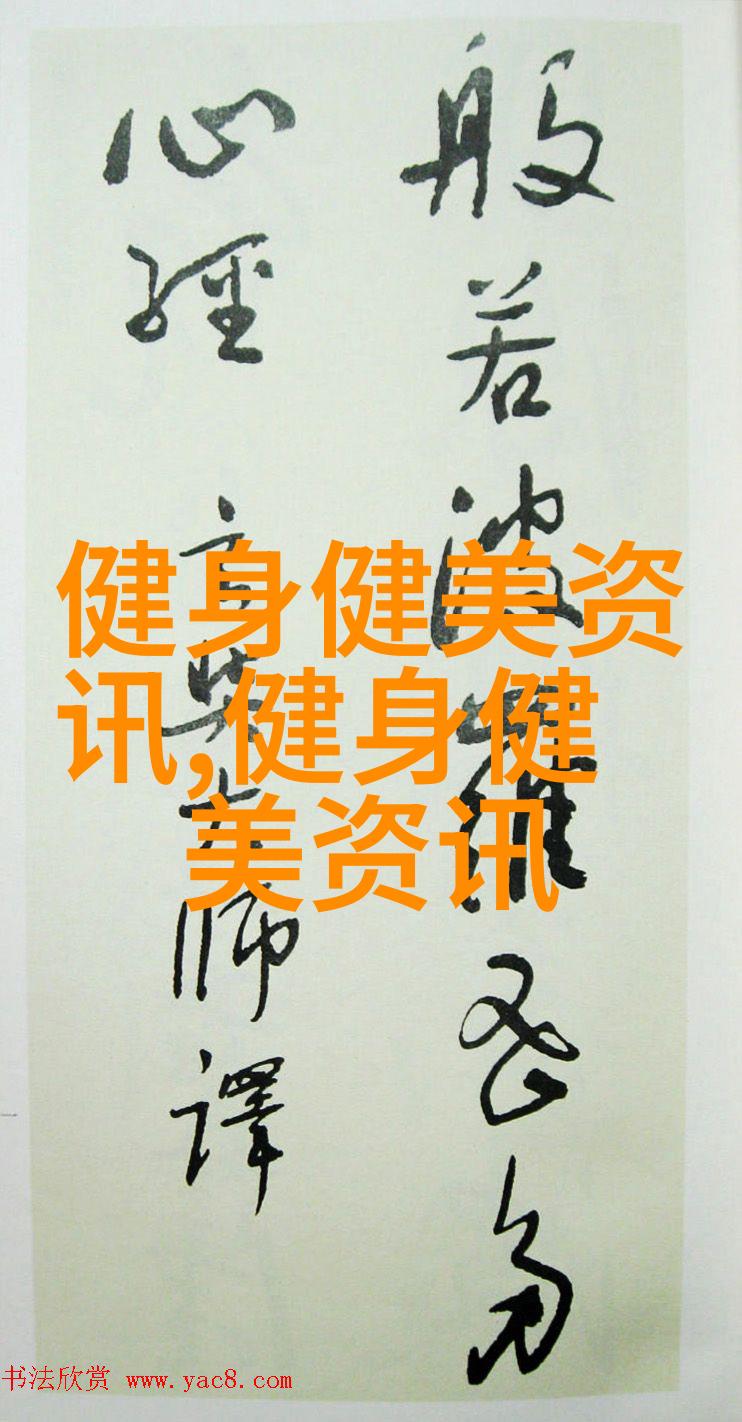 般若波羅蜜多
心經 玄奘大師譯
健身健美资
讯,健身健
美资讯
书法欣赏 www.yac8.com